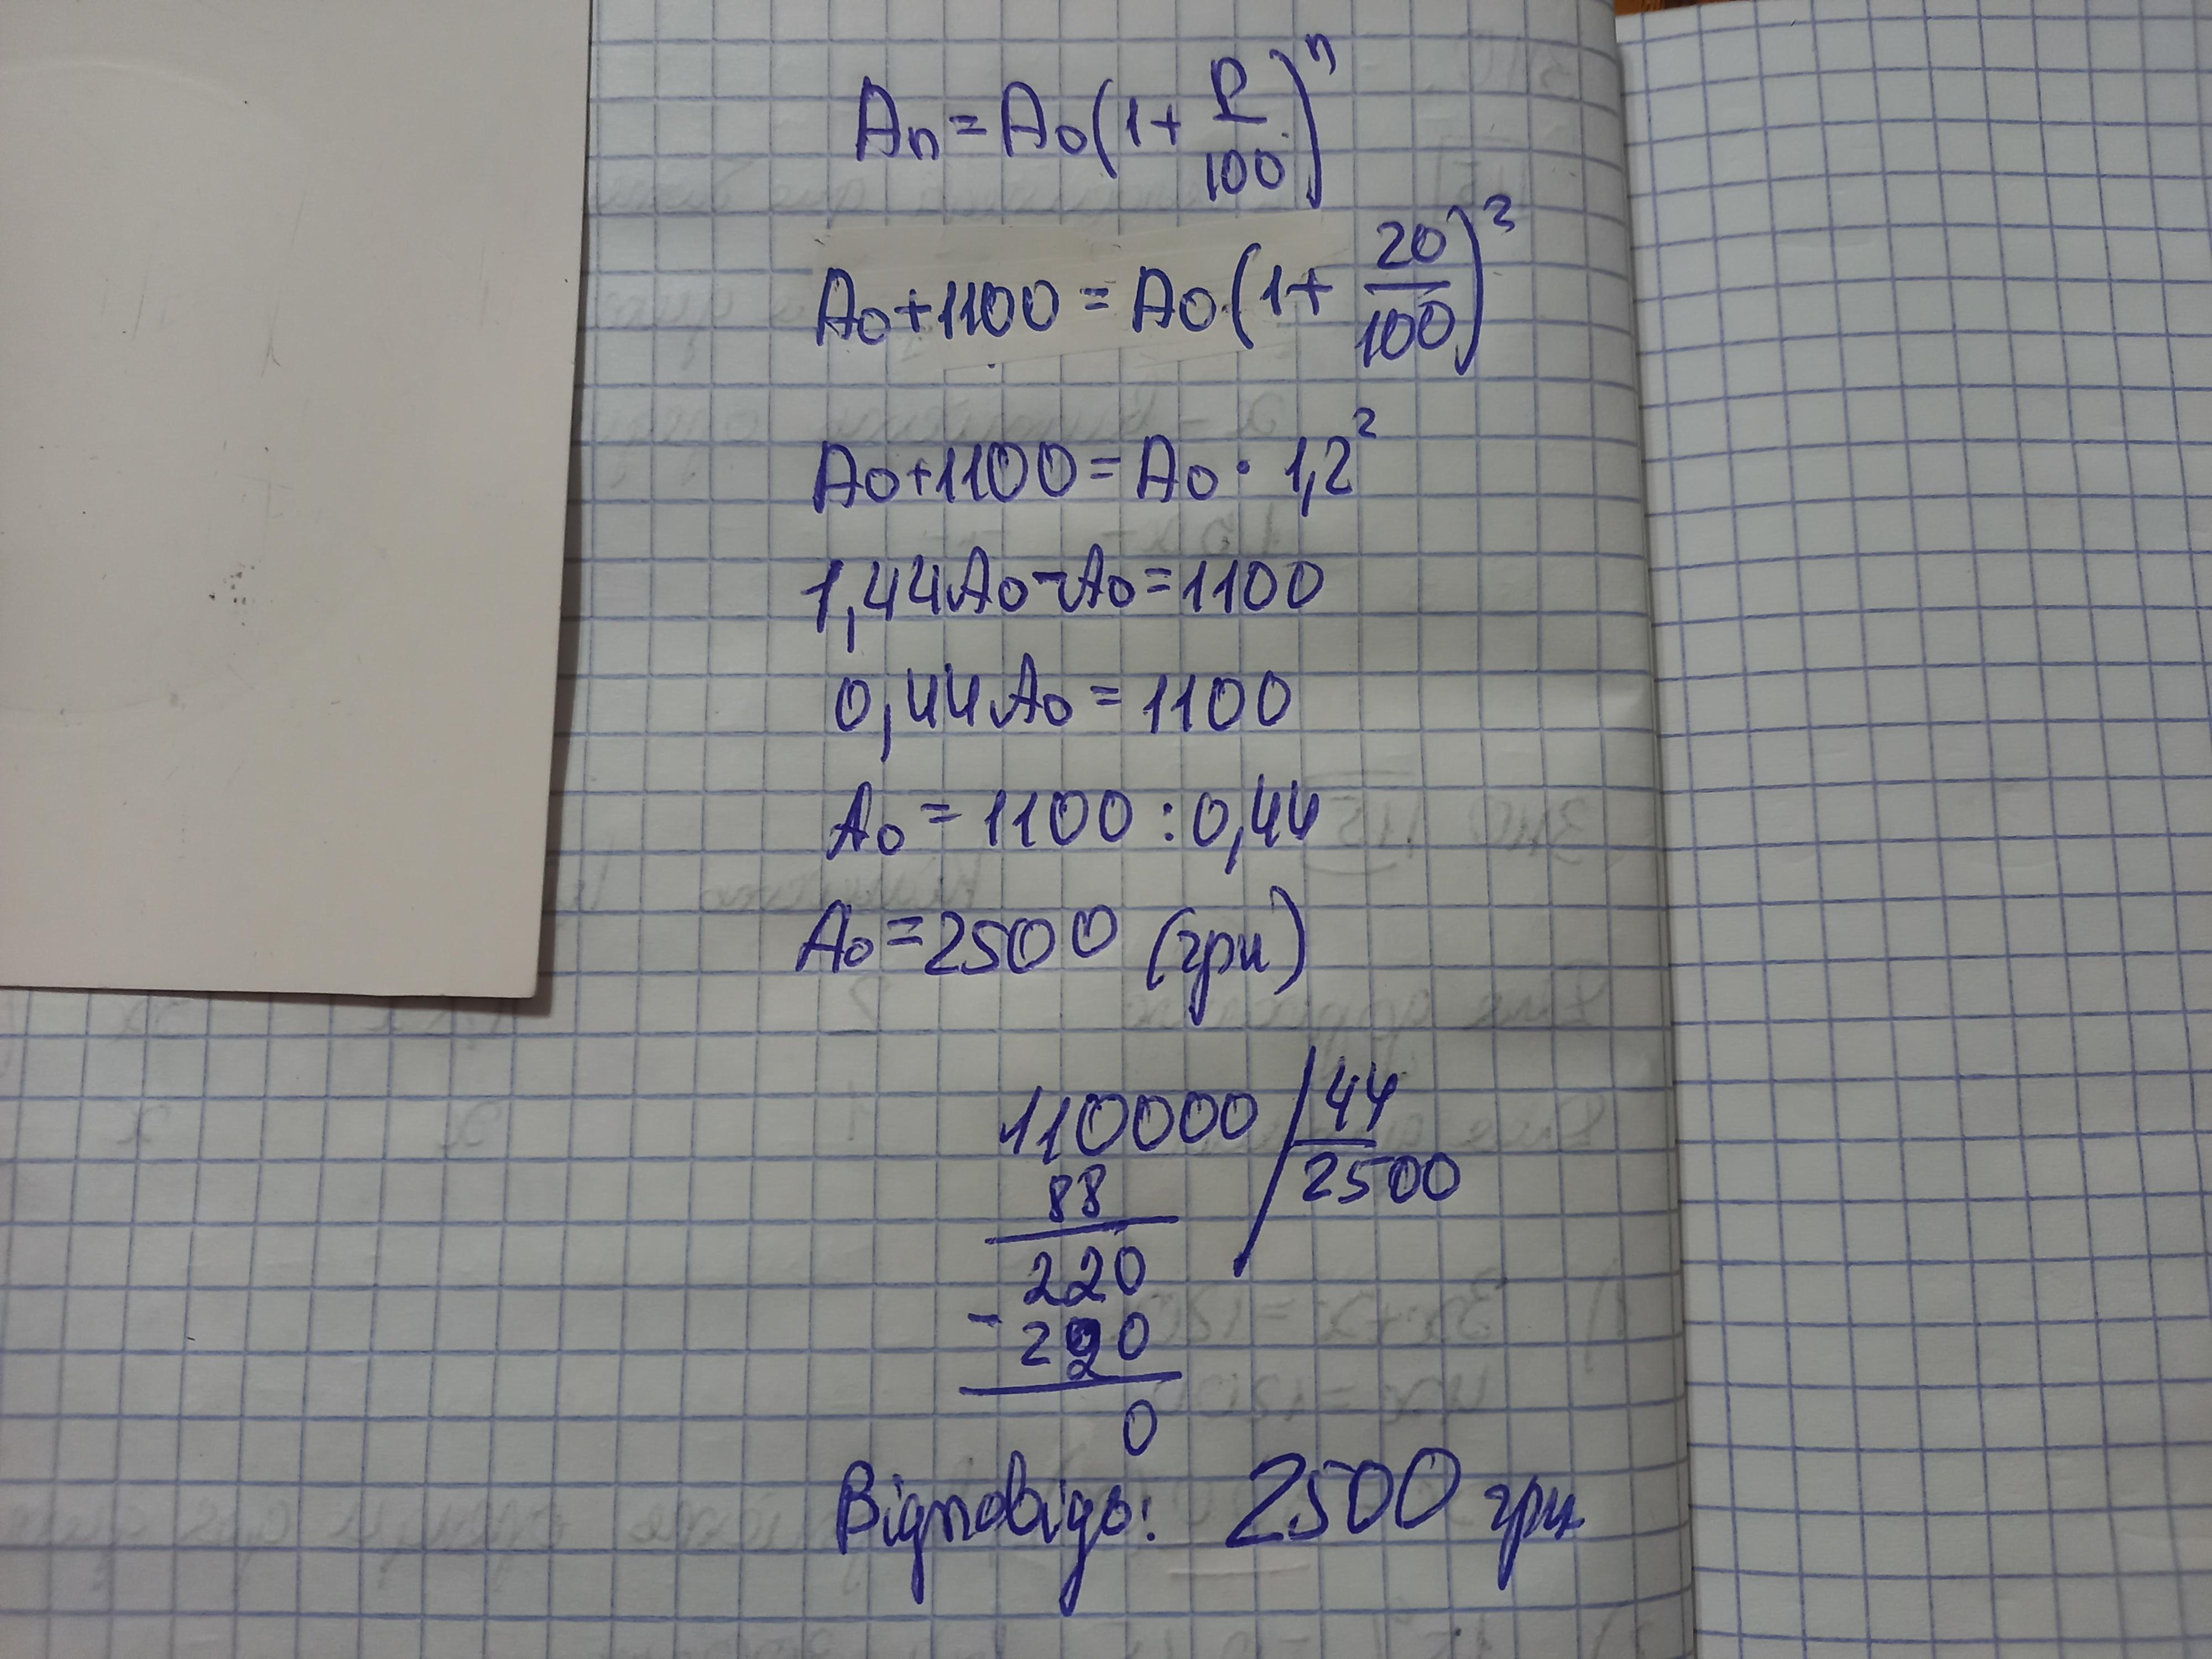 Aₙ = A₀(1 + P/100)ⁿ
A₀+1100 = A₀(1 + 20/100)²
A₀+1100 = A₀ · 1,2²
1,44A₀ - A₀ = 1100
0,44A₀ = 1100
A₀ = 1100 : 0,44
A₀ = 2500 (грн)
110000 | 44
88 2500
220
- 220
0
Відповідь: 2500 грн